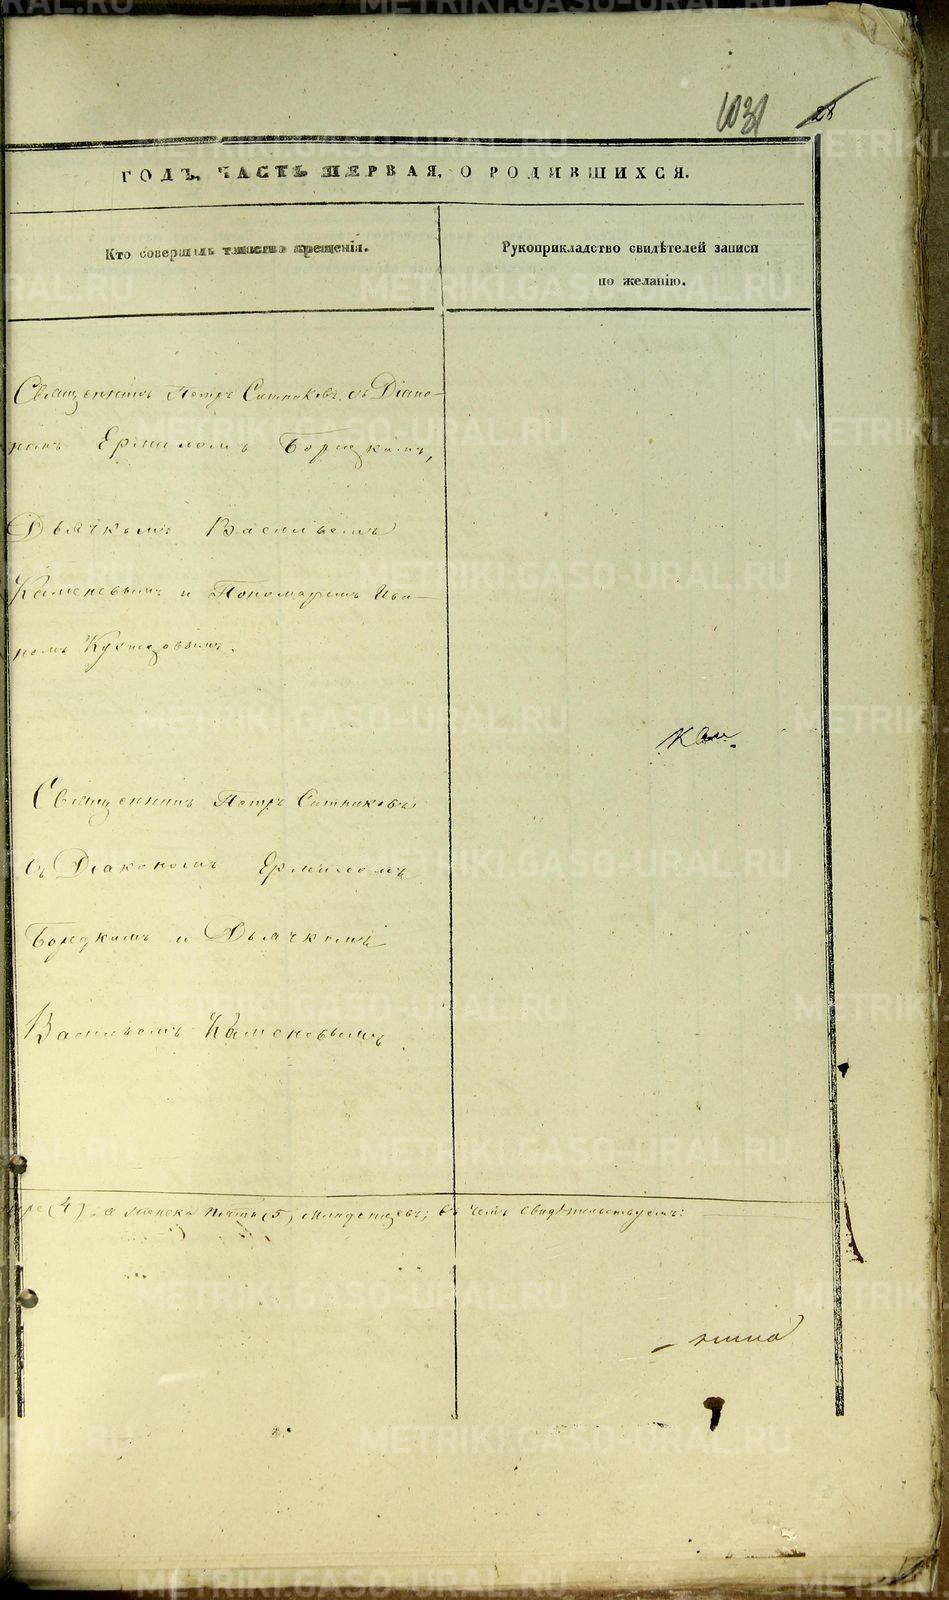 1031 28
ГОДЪ, ЧАСТЬ ПЕРВАЯ, О РОДИВШИХСЯ.
Кто совершилъ таинство крещенія.
Рукоприкладство свидѣтелей записи
по желанію.
Священникъ Петръ Ситниковъ съ Діако-
номъ Ермиломъ Борецкимъ,
Дьячкомъ Васильемъ
Каменевымъ и Пономаремъ Ива-
номъ Кузнецовымъ.
Священникъ Петръ Ситниковъ
съ Діакономъ Ермиломъ
Борецкимъ и Дьячкомъ
Васильемъ Каменевымъ
ыре (4), а женска пять (5) младенцевъ; въ чемъ свидѣтельствуемъ:
METRIKI.GASO-URAL.RU